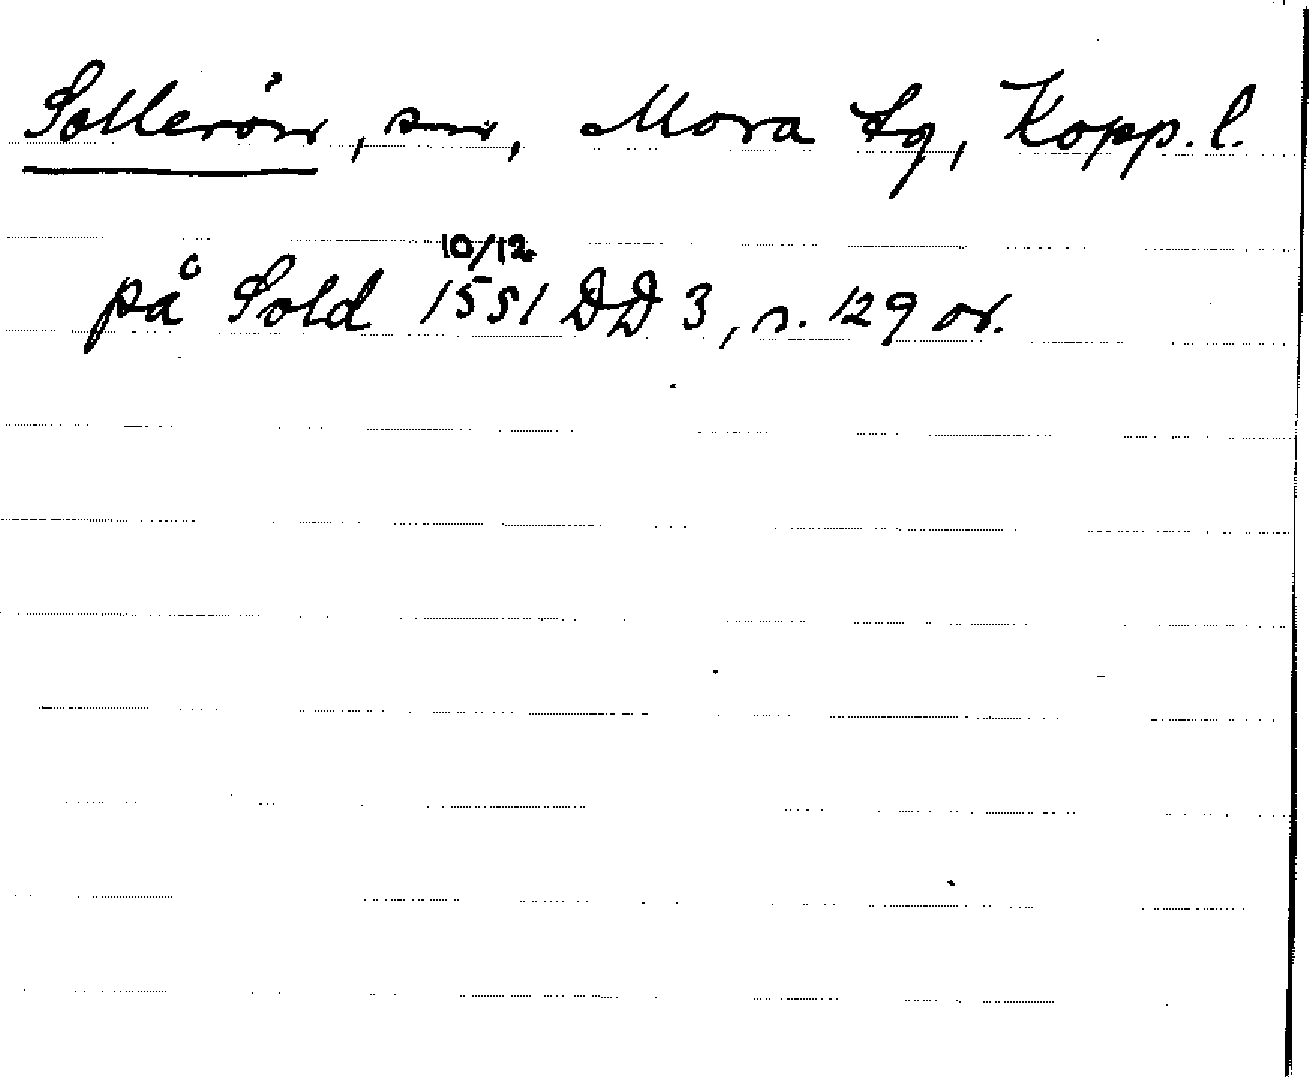 Sollerön, sn, Mora tg, Kopp. l.
10/12
på Sold 1551 DD 3, s. 129 or.